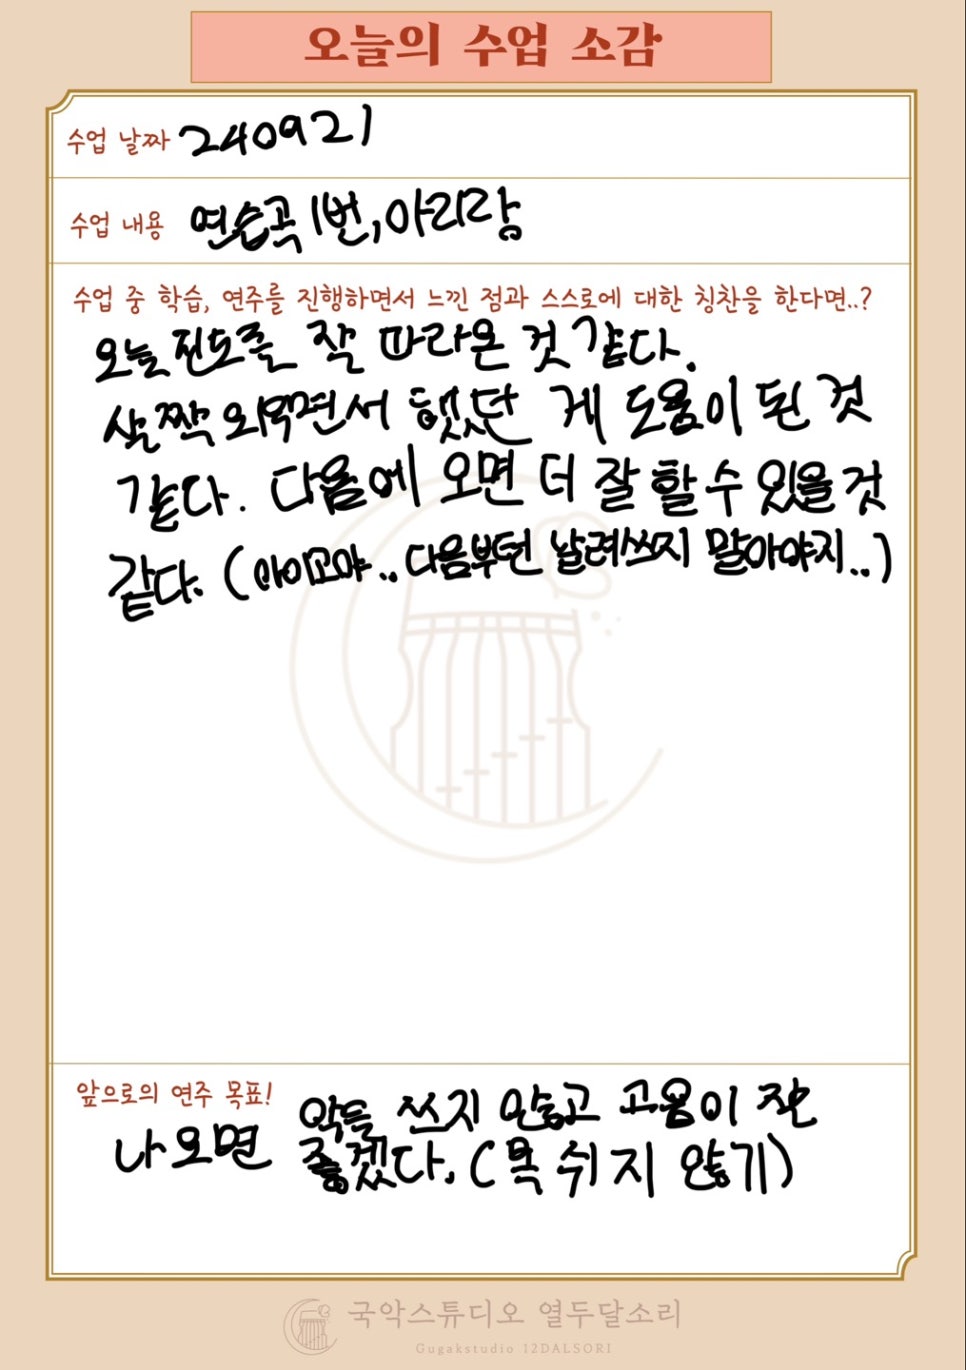 오늘의 수업 소감
수업 날짜 240921
수업 내용 연습곡 1번, 아리랑
수업 중 학습, 연주를 진행하면서 느낀 점과 스스로에 대한 칭찬을 한다면..?
오늘 진도를 잘 따라온 것 같다.
살짝 외우면서 했던 게 도움이 된 것
같다. 다음에 오면 더 잘 할 수 있을 것
같다. (아이고야.. 다음부턴 날려쓰지 말아야지..)
앞으로의 연주 목표! 악을 쓰지 않고 고음이 잘
나오면 좋겠다. (목 쉬지 않기)
국악스튜디오 열두달소리
Gugakstudio 12DALSORI